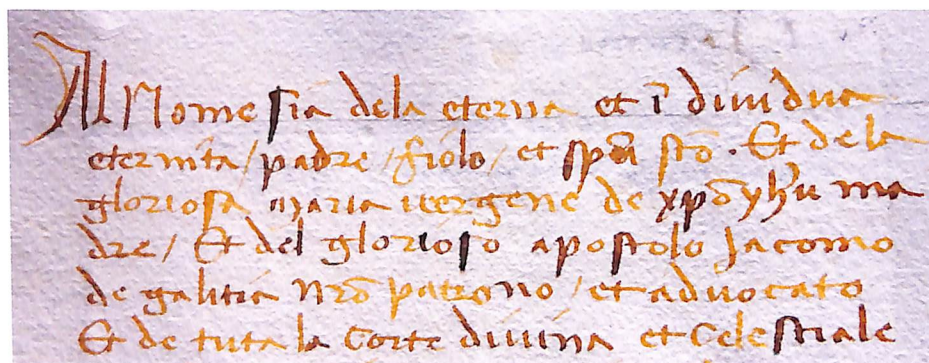 Al Nome sia dela eterna et ī diuidua
eternita / padre / fiolo / et spū stō. Et dela
gloriosa maria uergene de xpō yhu ma
dre / Et del glorioso apostolo Jacomo
de galitia nrō patrono / et aduocato
Et de tuta la Corte diuina et Celestiale